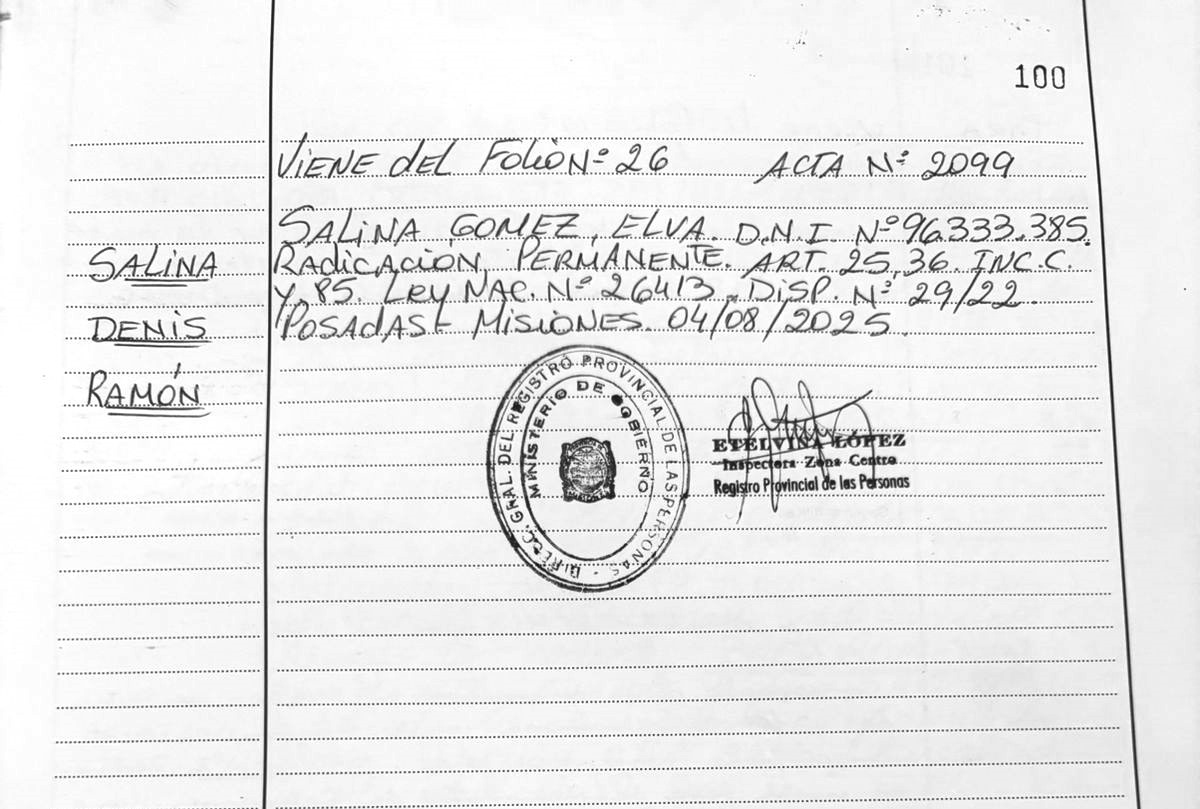 100
Viene del Folio Nº 26 ACTA Nº 2099
SALINA GOMEZ, ELVA. D.N.I. Nº 96.333.385.
SALINA
Radicación, PERMANENTE. ART. 25, 36. INC. C.
Y, 85. Ley NAC. Nº 26413, DISP. Nº 29/22.
DENIS
POSADAS - MISIONES. 04/08/2025.
RAMÓN
DIRECC. GRAL. DEL REGISTRO PROVINCIAL DE LAS PERSONAS -
MINISTERIO DE GOBIERNO
ETELVINA LÓPEZ
Inspectora Zona Centro
Registro Provincial de las Personas